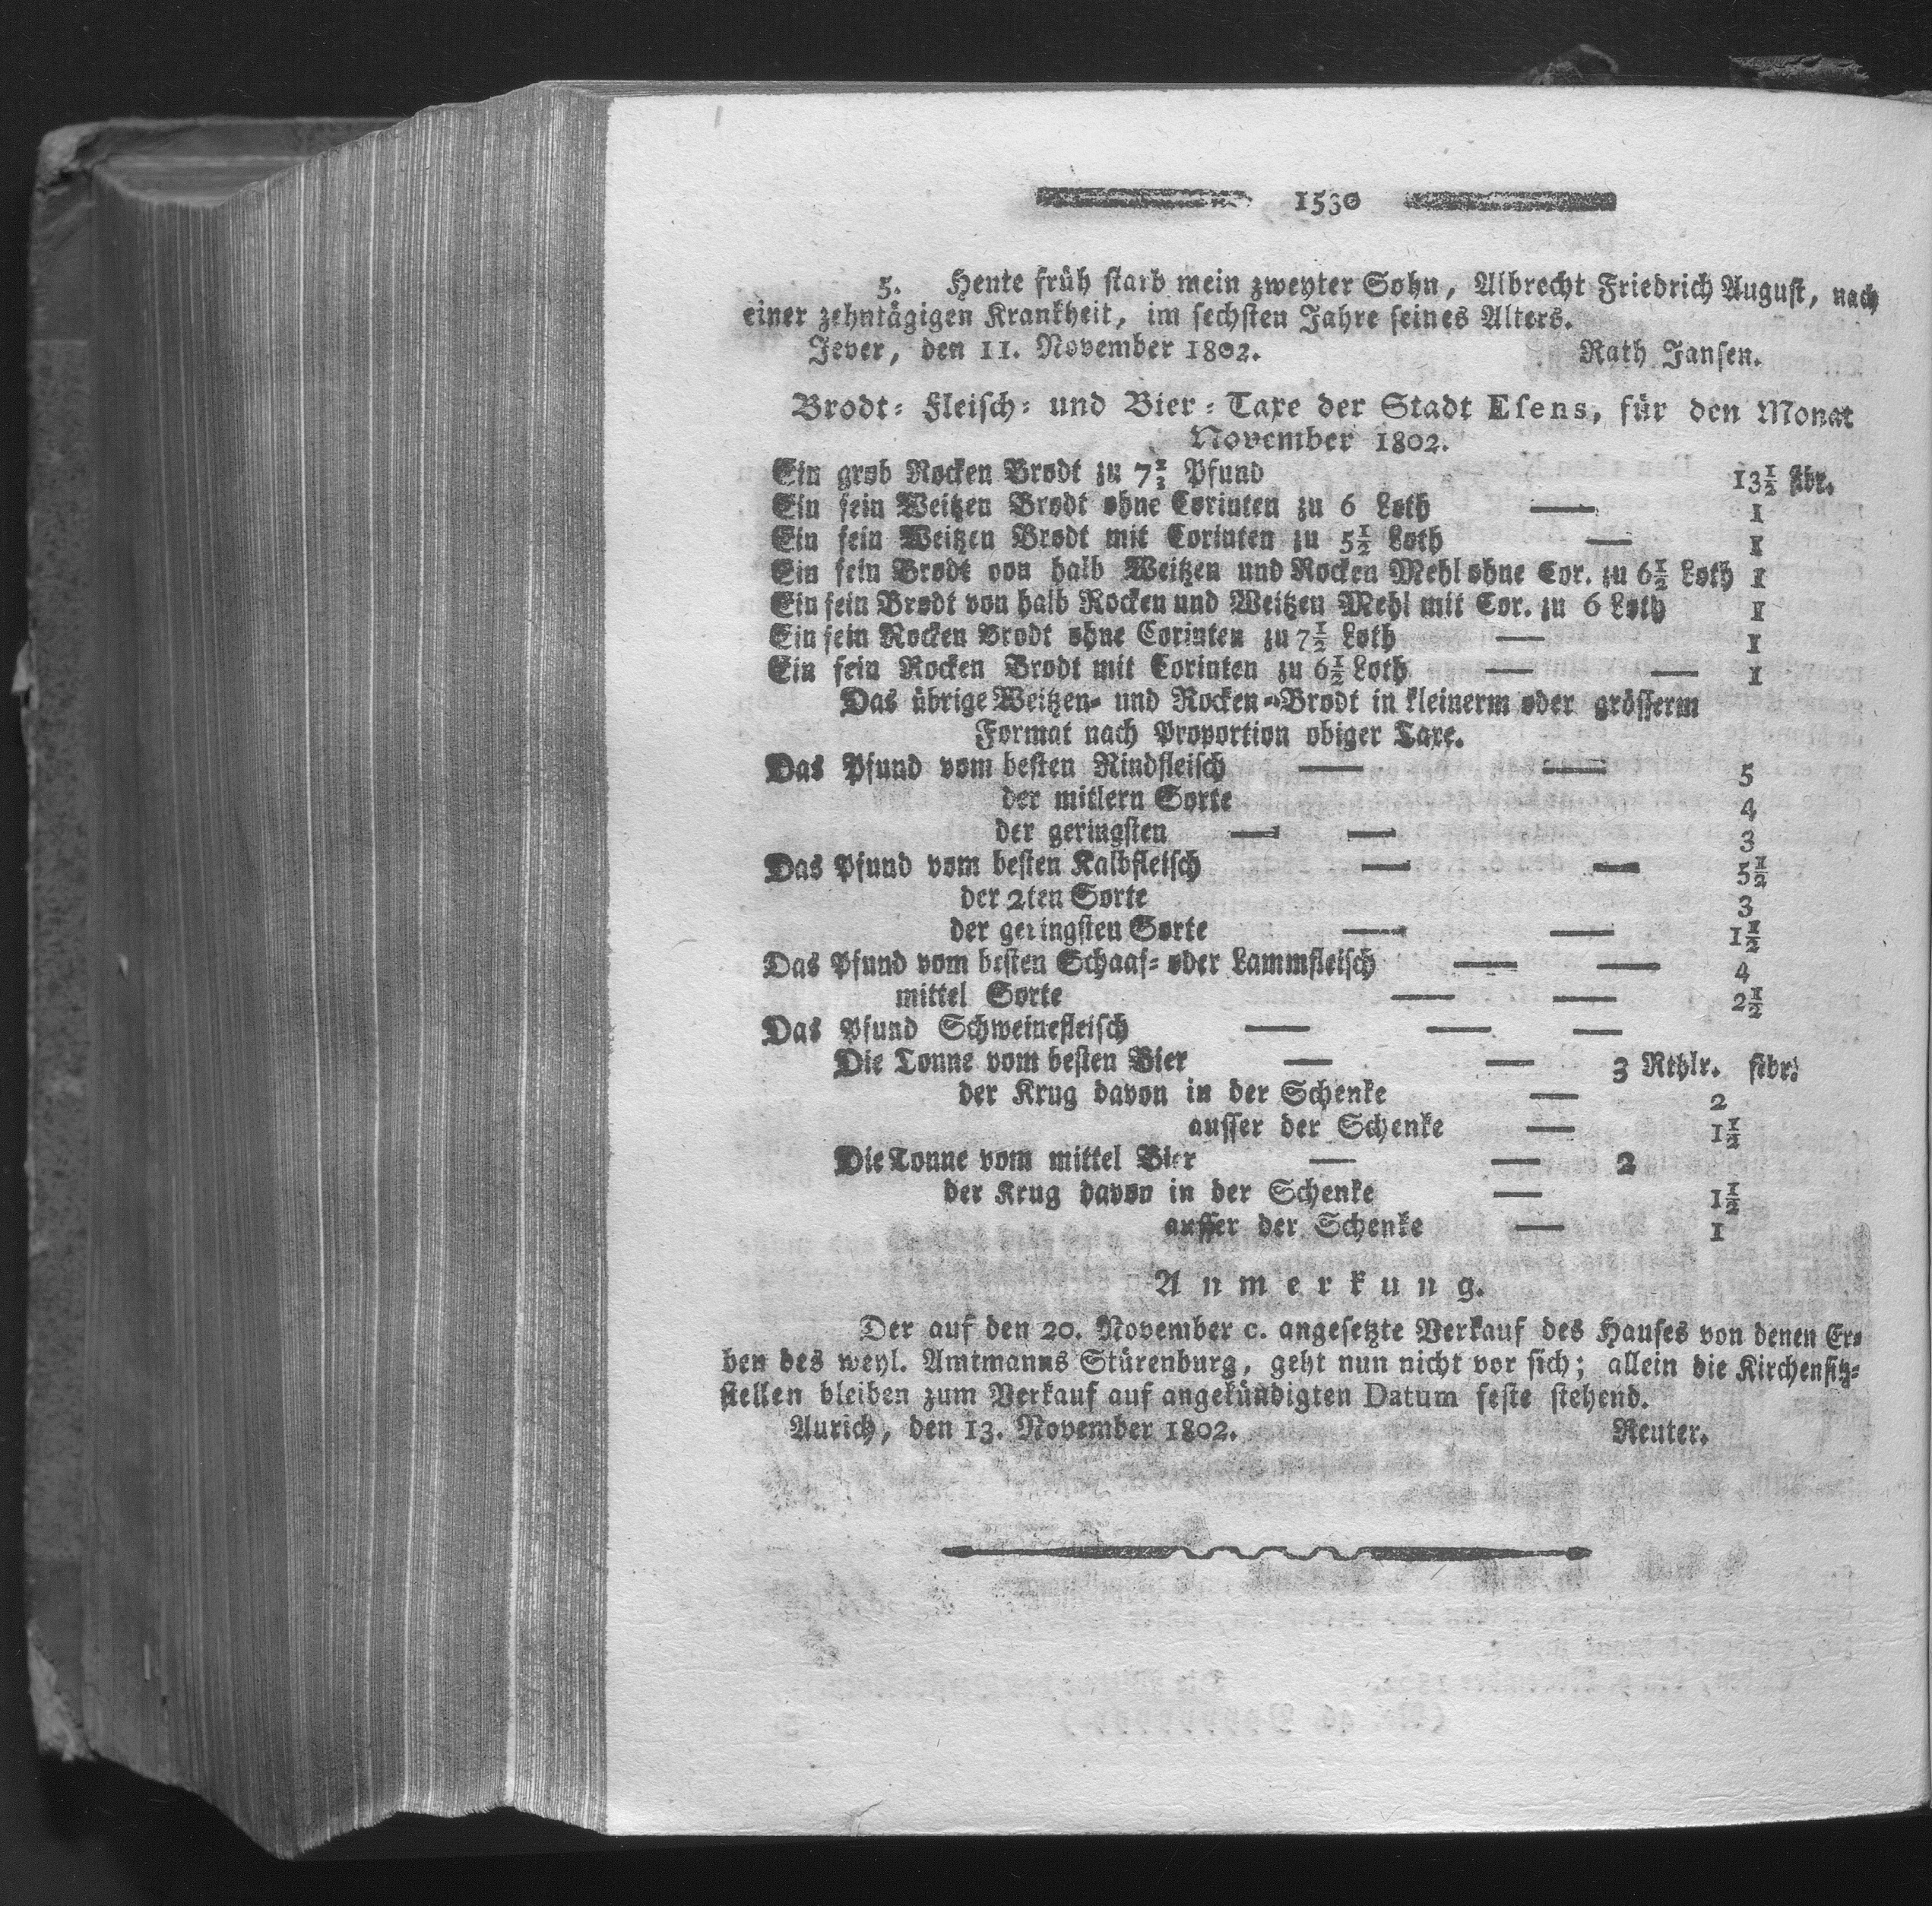 1530
5. Heute früh starb mein zweyter Sohn, Albrecht Friedrich August, nach
einer zehntägigen Krankheit, im sechsten Jahre seines Alters.
Jever, den 11. November 1802. Rath Jansen.
Brodt- Fleisch- und Bier-Taxe der Stadt Esens, für den Monat
November 1802.
Ein grob Rocken Brodt zu 7½ Pfund 13½ stbr.
Ein fein Weitzen Brodt ohne Corinten zu 6 Loth — 1
Ein fein Weitzen Brodt mit Corinten zu 5½ Loth — 1
Ein fein Brodt von halb Weitzen und Rocken Mehl ohne Cor. zu 6½ Loth 1
Ein fein Brodt von halb Rocken und Weitzen Mehl mit Cor. zu 6 Loth 1
Ein fein Rocken Brodt ohne Corinten zu 7½ Loth — 1
Ein fein Rocken Brodt mit Corinten zu 6½ Loth — — 1
Das übrige Weitzen- und Rocken-Brodt in kleinerm oder grösserm
Format nach Proportion obiger Taxe.
Das Pfund vom besten Rindfleisch — — 5
der mitlern Sorte 4
der geringsten — — 3
Das Pfund vom besten Kalbfleisch — — 5½
der 2ten Sorte 3
der geringsten Sorte — — 1½
Das Pfund vom besten Schaaf- oder Lammfleisch — — 4
mittel Sorte — — 2½
Das Pfund Schweinefleisch — — —
Die Tonne vom besten Bier — — 3 Rthlr. stbr.
der Krug davon in der Schenke — 2
ausser der Schenke — 1½
Die Tonne vom mittel Bier — — 2
der Krug davon in der Schenke — 1½
ausser der Schenke — 1
Anmerkung.
Der auf den 20. November c. angesetzte Verkauf des Hauses von denen Er-
ben des weyl. Amtmanns Stürenburg, geht nun nicht vor sich; allein die Kirchensitz-
stellen bleiben zum Verkauf auf angekündigten Datum feste stehend.
Aurich, den 13. November 1802. Reuter.